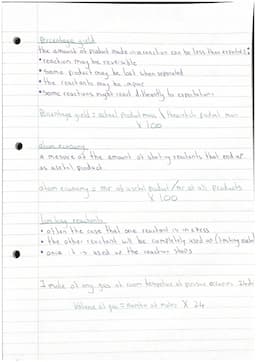 Percentage yield
the amount of product made in a reaction can be less than expected:
• reaction may be reversible
• some product may be lost when separated
• the reactants may be impure
• some reactions might react differently to expectations
Percentage yield = actual product mass / theoretical product mass
X 100
atom economy
a measure of the amount of starting reactants that end up
as useful product
atom economy = mr of useful product / mr of all products
X 100
limiting reactants
• often the case that one reactant is in excess
• the other reactant will be completely used up (limiting
• once it is used up the reaction stops
1 mole of any gas at room temperature at pressure occupies 24
Volume of gas = number of moles X 24